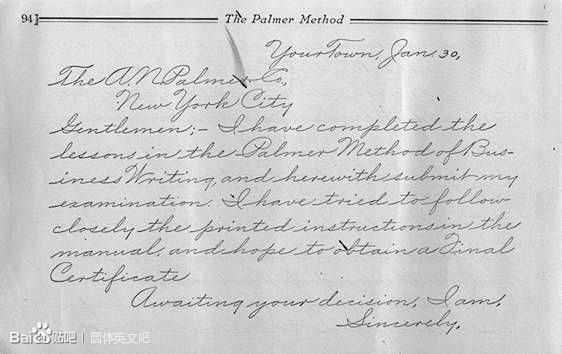 94 The Palmer Method
Your Town, Jan. 30,
The A. N. Palmer Co.,
New York City
Gentlemen:- I have completed the
lessons in the Palmer Method of Bus-
iness Writing, and herewith submit my
examination. I have tried to follow
closely the printed instructions in the
manual, and hope to obtain a Final
Certificate
Awaiting your decision, I am,
Sincerely,
Bai贴吧 | 圆体英文吧